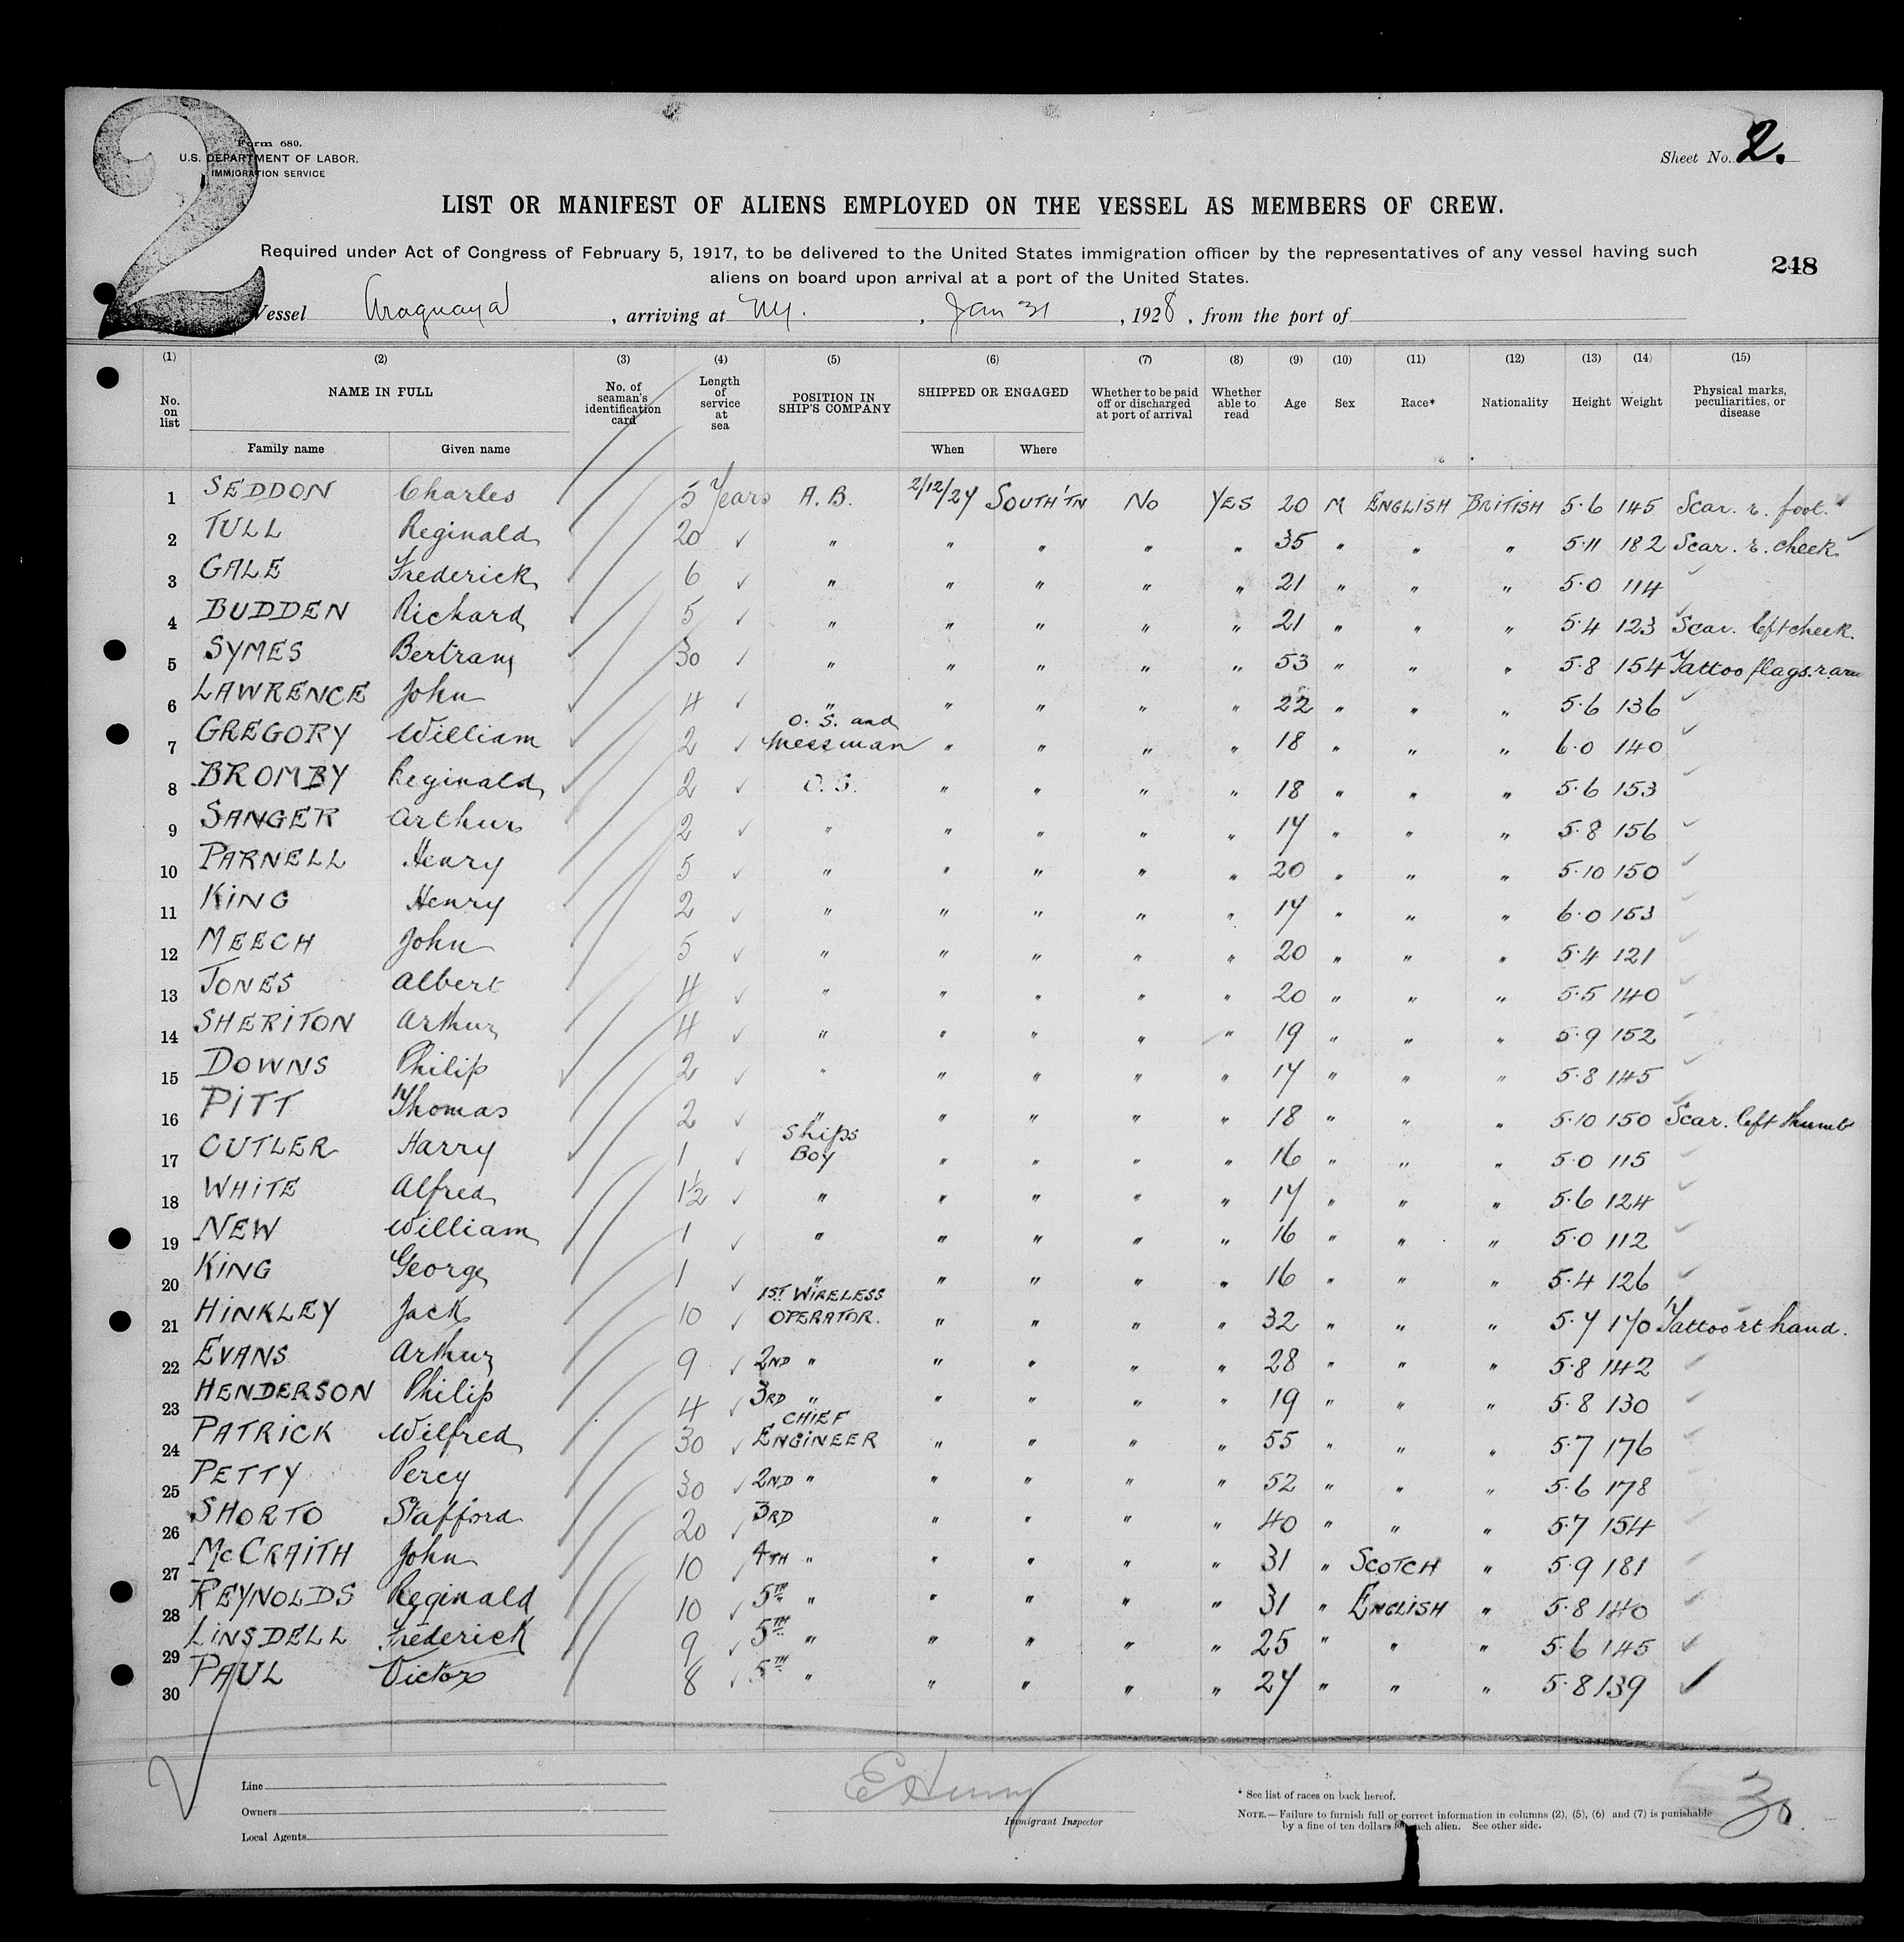 2
Form 680.
U.S. DEPARTMENT OF LABOR.
IMMIGRATION SERVICE
Sheet No. 2.
LIST OR MANIFEST OF ALIENS EMPLOYED ON THE VESSEL AS MEMBERS OF CREW.
Required under Act of Congress of February 5, 1917, to be delivered to the United States immigration officer by the representatives of any vessel having such
aliens on board upon arrival at a port of the United States.
248
Vessel Araguaya , arriving at NY. , Jan 31 , 1928 , from the port of
(1) (2) (3) (4) (5) (6) (7) (8) (9) (10) (11) (12) (13) (14) (15)
No. on list NAME IN FULL No. of seaman's identification card Length of service at sea POSITION IN SHIP'S COMPANY SHIPPED OR ENGAGED Whether to be paid off or discharged at port of arrival Whether able to read Age Sex Race* Nationality Height Weight Physical marks, peculiarities, or disease
Family name Given name When Where
1 SEDDON Charles 5 Years A.B. 2/12/27 SOUTH'TN No YES 20 M ENGLISH BRITISH 5.6 145 Scar. r. foot.
2 TULL Reginald 20 ✓ " " " " " 35 " " " 5.11 182 Scar. r. cheek
3 GALE Frederick 6 ✓ " " " " " 21 " " " 5.0 114
4 BUDDEN Richard 5 ✓ " " " " " 21 " " " 5.4 123 Scar. left cheek.
5 SYMES Bertram 30 ✓ " " " " " 53 " " " 5.8 154 Tattoo flags. r. arm
6 LAWRENCE John 4 ✓ " " " " " 22 " " " 5.6 136 ✓
7 GREGORY William 2 ✓ O. S. and Messman " " " " 18 " " " 6.0 140 ✓
8 BROMBY Reginald 2 ✓ O. S. " " " " 18 " " " 5.6 153 ✓
9 SANGER Arthur 2 ✓ " " " " " 17 " " " 5.8 156 ✓
10 PARNELL Henry 5 ✓ " " " " " 20 " " " 5.10 150 ✓
11 KING Henry 2 ✓ " " " " " 17 " " " 6.0 153 ✓
12 MEECH John 5 ✓ " " " " " 20 " " " 5.4 121 ✓
13 JONES Albert 4 ✓ " " " " " 20 " " " 5.5 140 ✓
14 SHERITON Arthur 4 ✓ " " " " " 19 " " " 5.9 152 ✓
15 DOWNS Philip 2 ✓ " " " " " 17 " " " 5.8 145 ✓
16 PITT Thomas 2 ✓ " " " " " 18 " " " 5.10 150 Scar. left thumb
17 CUTLER Harry 1 ✓ Ships Boy " " " " 16 " " " 5.0 115 ✓
18 WHITE Alfred 1½ ✓ " " " " " 17 " " " 5.6 124 ✓
19 NEW William 1 ✓ " " " " " 16 " " " 5.0 112 ✓
20 KING George 1 ✓ " " " " " 16 " " " 5.4 126 ✓
21 HINKLEY Jack 10 ✓ 1ST WIRELESS OPERATOR. " " " " 32 " " " 5.7 170 Tattoo rt hand.
22 EVANS Arthur 9 ✓ 2ND " " " " " 28 " " " 5.8 142 ✓
23 HENDERSON Philip 4 ✓ 3RD " " " " " 19 " " " 5.8 130 ✓
24 PATRICK Wilfred 30 ✓ CHIEF ENGINEER " " " " 55 " " " 5.7 176 ✓
25 PETTY Percy 30 ✓ 2ND " " " " " 52 " " " 5.6 178 ✓
26 SHORTO Stafford 20 ✓ 3RD " " " " 40 " " " 5.7 154 ✓
27 McCRAITH John 10 ✓ 4TH " " " " " 31 " SCOTCH " 5.9 181 ✓
28 REYNOLDS Reginald 10 ✓ 5TH " " " " " 31 " ENGLISH " 5.8 140 ✓
29 LINSDELL Frederick 9 ✓ 5TH " " " " " 25 " " " 5.6 145 ✓
30 PAUL Victor 8 ✓ 5TH " " " " " 27 " " " 5.8 139 ✓
Line
Owners
Local Agents
Immigrant Inspector
* See list of races on back hereof.
NOTE.—Failure to furnish full or correct information in columns (2), (5), (6) and (7) is punishable
by a fine of ten dollars for each alien. See other side.
30